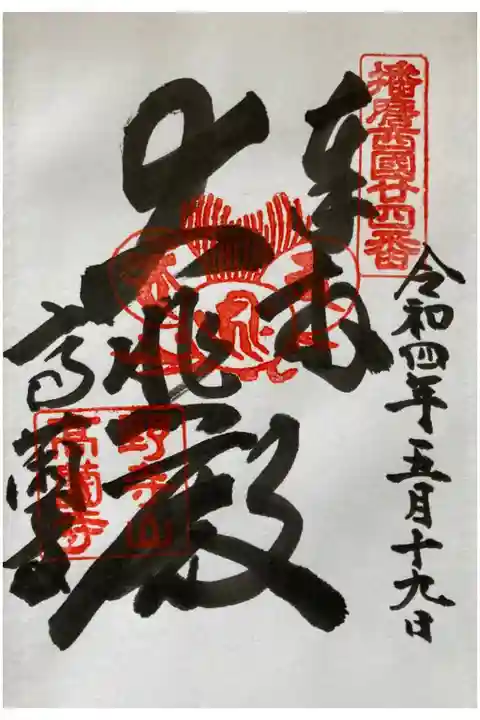 播磨西國廿四番
令和四年五月十九日
奉拝
大悲殿
高蘭寺
野寺山
高薗寺